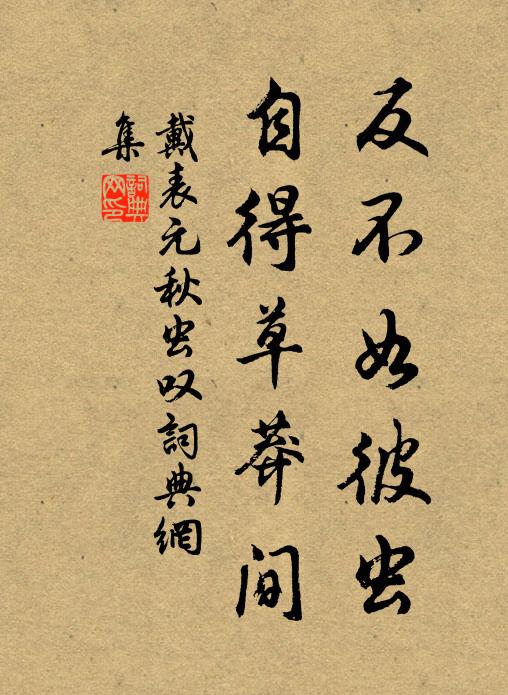 反不如彼虫
自得草莽间
戴表元秋虫叹詞典網
集
詞典網印